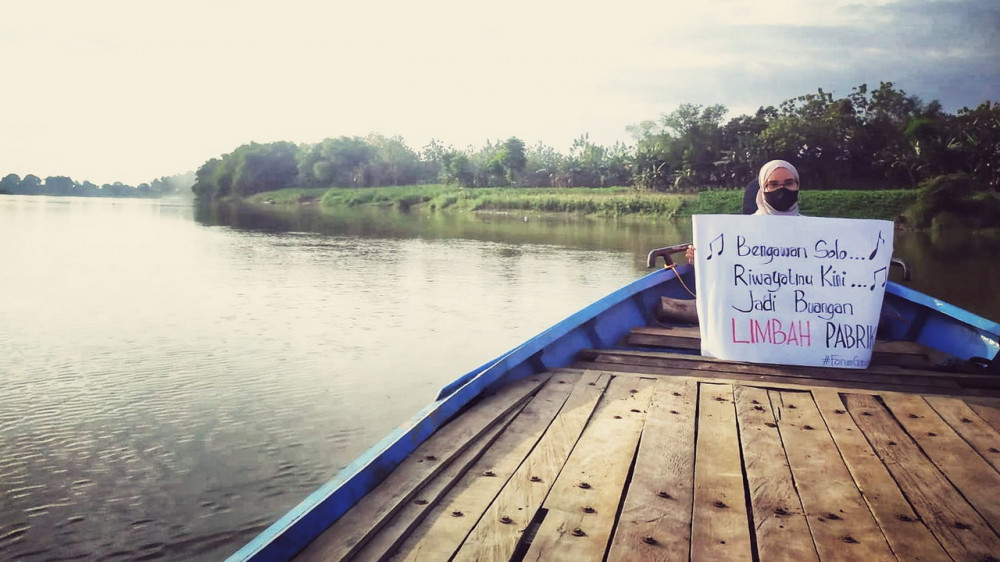 Bengawan Solo...
Riwayatmu Kini ...
Jadi Buangan
LIMBAH PABRIK